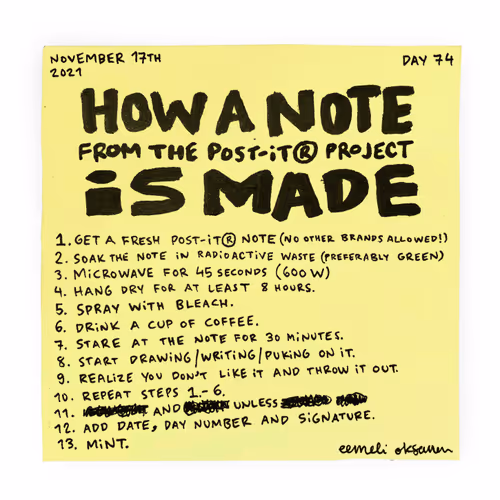 NOVEMBER 17TH
2021
DAY 74
HOW A NOTE
FROM THE POST-iT® PROJECT
iS MADE
1. GET A FRESH POST-iT® NOTE (NO OTHER BRANDS ALLOWED!)
2. SOAK THE NOTE IN RADIOACTIVE WASTE (PREFERABLY GREEN)
3. MICROWAVE FOR 45 SECONDS (600 W)
4. HANG DRY FOR AT LEAST 8 HOURS.
5. SPRAY WITH BLEACH.
6. DRINK A CUP OF COFFEE.
7. STARE AT THE NOTE FOR 30 MINUTES.
8. START DRAWING/WRITING/PUKING ON IT.
9. REALIZE YOU DON'T LIKE IT AND THROW IT OUT.
10. REPEAT STEPS 1.-6.
11. AND UNLESS
12. ADD DATE, DAY NUMBER AND SIGNATURE.
13. MINT.
eemeli oksanen